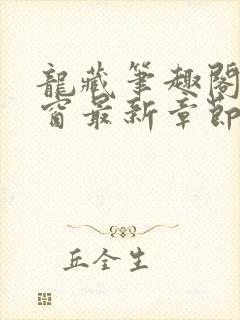 龍藏筆趣閣
窗最新章節
丘全生